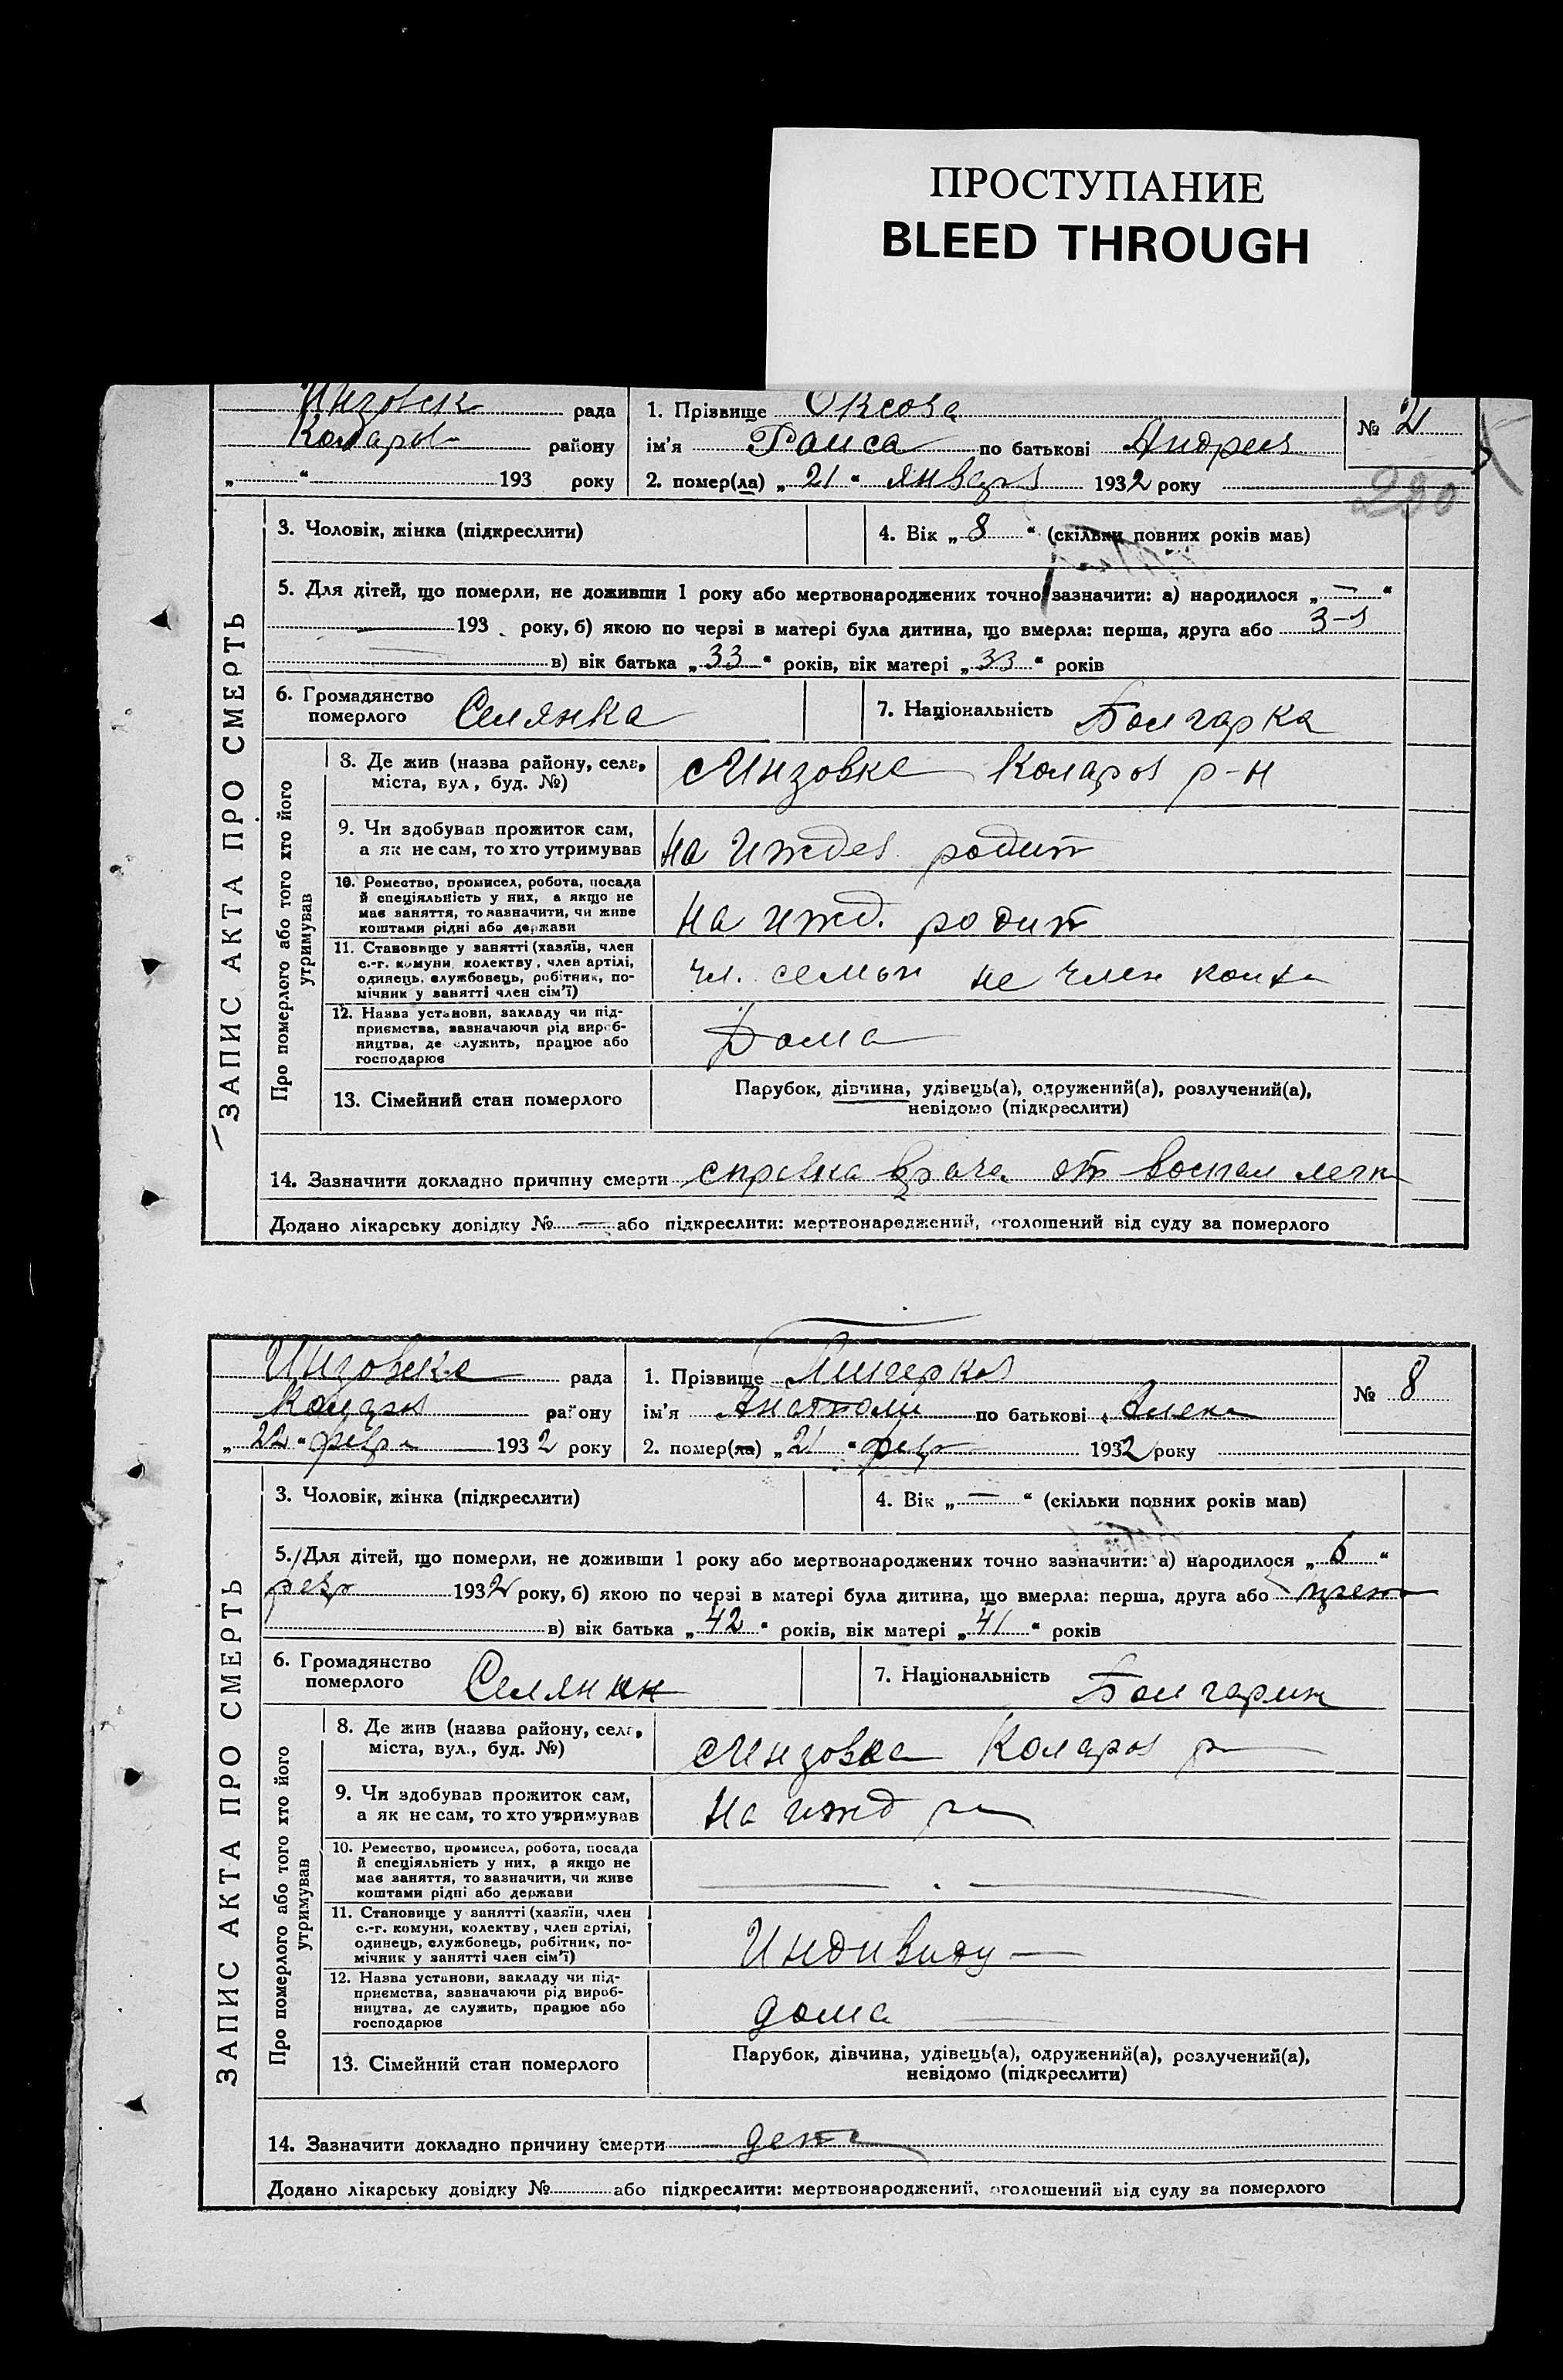 ПРОСТУПАНИЕ
BLEED THROUGH
Инзовск рада
1. Прізвище Оксова
№ 21
Коларов району
ім'я Раиса по батькові Андрея
„ “ 193 року
2. помер(ла) „ 21 “ января 1932 року
280
3. Чоловік, жінка (підкреслити)
4. Вік „ 8 “ (скільки повних років мав)
5. Для дітей, що померли, не доживши 1 року або мертвонароджених точно зазначити: а) народилося „ — “
193 року, б) якою по черзі в матері була дитина, що вмерла: перша, друга або 3-я
в) вік батька „ 33 “ років, вік матері „ 33 “ років
6. Громадянство
померлого Селянка
7. Національність Болгарка
ЗАПИС АКТА ПРО СМЕРТЬ
Про померлого або того хто його
утримував
8. Де жив (назва району, села,
міста, вул., буд. №)
Инзовка Коларов р-н
9. Чи здобував прожиток сам,
а як не сам, то хто утримував
на иждев родит
10. Ремество, промисел, робота, посада
й спеціяльність у них, а якщо не
має заняття, то зазначити, чи живе
коштами рідні або держави
на ижд. родит
11. Становище у занятті (хазяїн, член
с.-г. комуни, колектву, член артілі,
одинець, службовець, робітник, по-
мічник у занятті член сім'ї)
чл. семьи не член колх
12. Назва установи, закладу чи під-
приємства, зазначаючи рід вироб-
ництва, де служить, працює або
господарює
Дома
13. Сімейний стан померлого
Парубок, дівчина, удівець(а), одружений(а), розлучений(а),
невідомо (підкреслити)
14. Зазначити докладно причину смерти справка врача от воспал легк
Додано лікарську довідку № — або підкреслити: мертвонароджений, оголошений від суду за померлого
Инзовска рада
1. Прізвище
№ 8
Колар району
ім'я Анатоли по батькові Алек
„ 22 “ февр 1932 року
2. помер(ла) „ 21 “ февр 1932 року
3. Чоловік, жінка (підкреслити)
4. Вік „ — “ (скільки повних років мав)
5. Для дітей, що померли, не доживши 1 року або мертвонароджених точно зазначити: а) народилося „ 6 “
февр 1932 року, б) якою по черзі в матері була дитина, що вмерла: перша, друга або
в) вік батька „ 42 “ років, вік матері „ 41 “ років
6. Громадянство
померлого Селянин
7. Національність Болгарин
ЗАПИС АКТА ПРО СМЕРТЬ
Про померлого або того хто його
утримував
8. Де жив (назва району, села,
міста, вул., буд. №)
Инзовка Коларов р
9. Чи здобував прожиток сам,
а як не сам, то хто утримував
на ижд р
10. Ремество, промисел, робота, посада
й спеціяльність у них, а якщо не
має заняття, то зазначити, чи живе
коштами рідні або держави
11. Становище у занятті (хазяїн, член
с.-г. комуни, колектву, член артілі,
одинець, службовець, робітник, по-
мічник у занятті член сім'ї)
Индивиду
12. Назва установи, закладу чи під-
приємства, зазначаючи рід вироб-
ництва, де служить, працює або
господарює
дома
13. Сімейний стан померлого
Парубок, дівчина, удівець(а), одружений(а), розлучений(а),
невідомо (підкреслити)
14. Зазначити докладно причину смерти
Додано лікарську довідку № або підкреслити: мертвонароджений, оголошений від суду за померлого